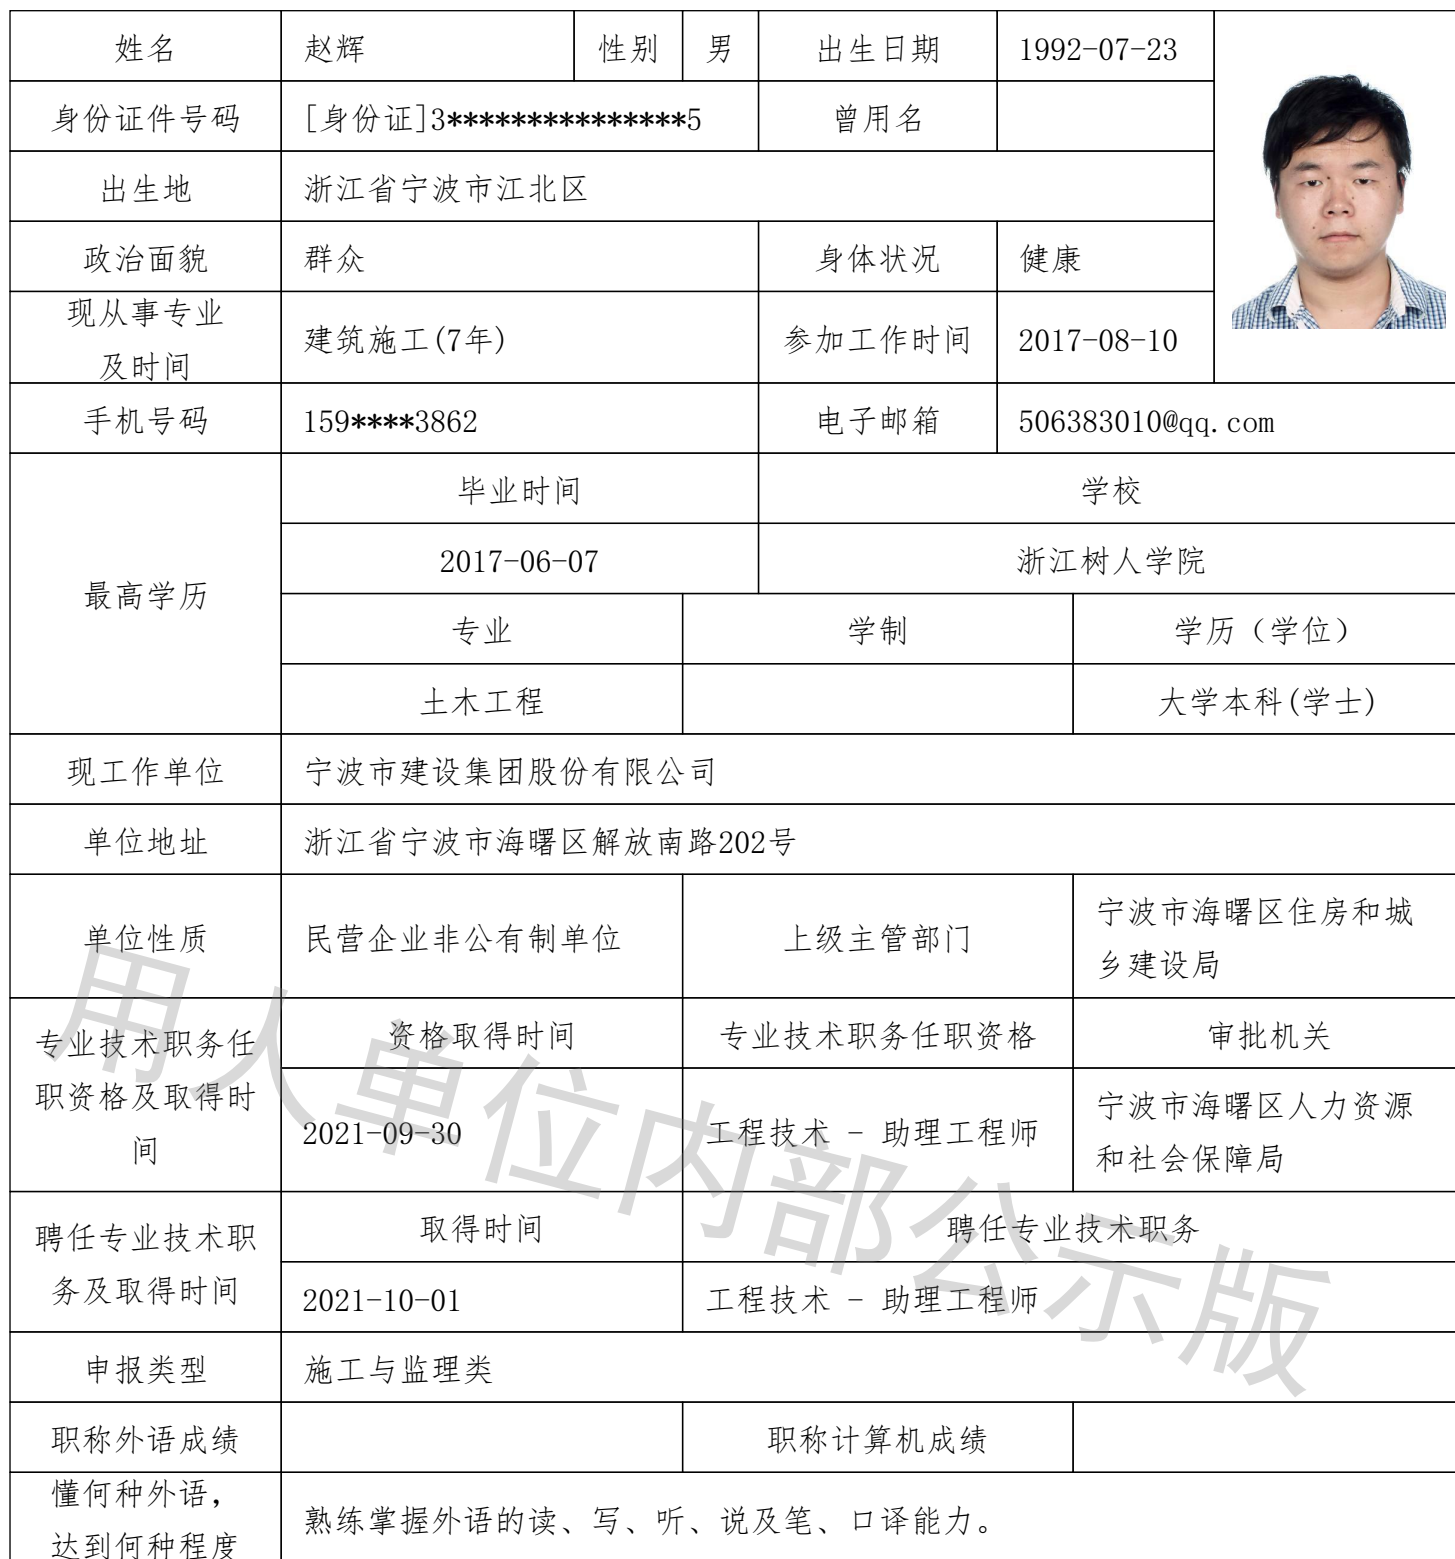 姓名 赵辉 性别 男 出生日期 1992-07-23
身份证件号码 [身份证]3***************5 曾用名
出生地 浙江省宁波市江北区
政治面貌 群众 身体状况 健康
现从事专业
及时间 建筑施工(7年) 参加工作时间 2017-08-10
手机号码 159****3862 电子邮箱 506383010@qq.com
最高学历
毕业时间 学校
2017-06-07 浙江树人学院
专业 学制 学历（学位）
土木工程 大学本科(学士)
现工作单位 宁波市建设集团股份有限公司
单位地址 浙江省宁波市海曙区解放南路202号
单位性质 民营企业非公有制单位 上级主管部门 宁波市海曙区住房和城
乡建设局
专业技术职务任
职资格及取得时
间
资格取得时间 专业技术职务任职资格 审批机关
2021-09-30 工程技术 - 助理工程师 宁波市海曙区人力资源
和社会保障局
聘任专业技术职
务及取得时间
取得时间 聘任专业技术职务
2021-10-01 工程技术 - 助理工程师
申报类型 施工与监理类
职称外语成绩 职称计算机成绩
懂何种外语，
达到何种程度 熟练掌握外语的读、写、听、说及笔、口译能力。
用人单位内部公示版